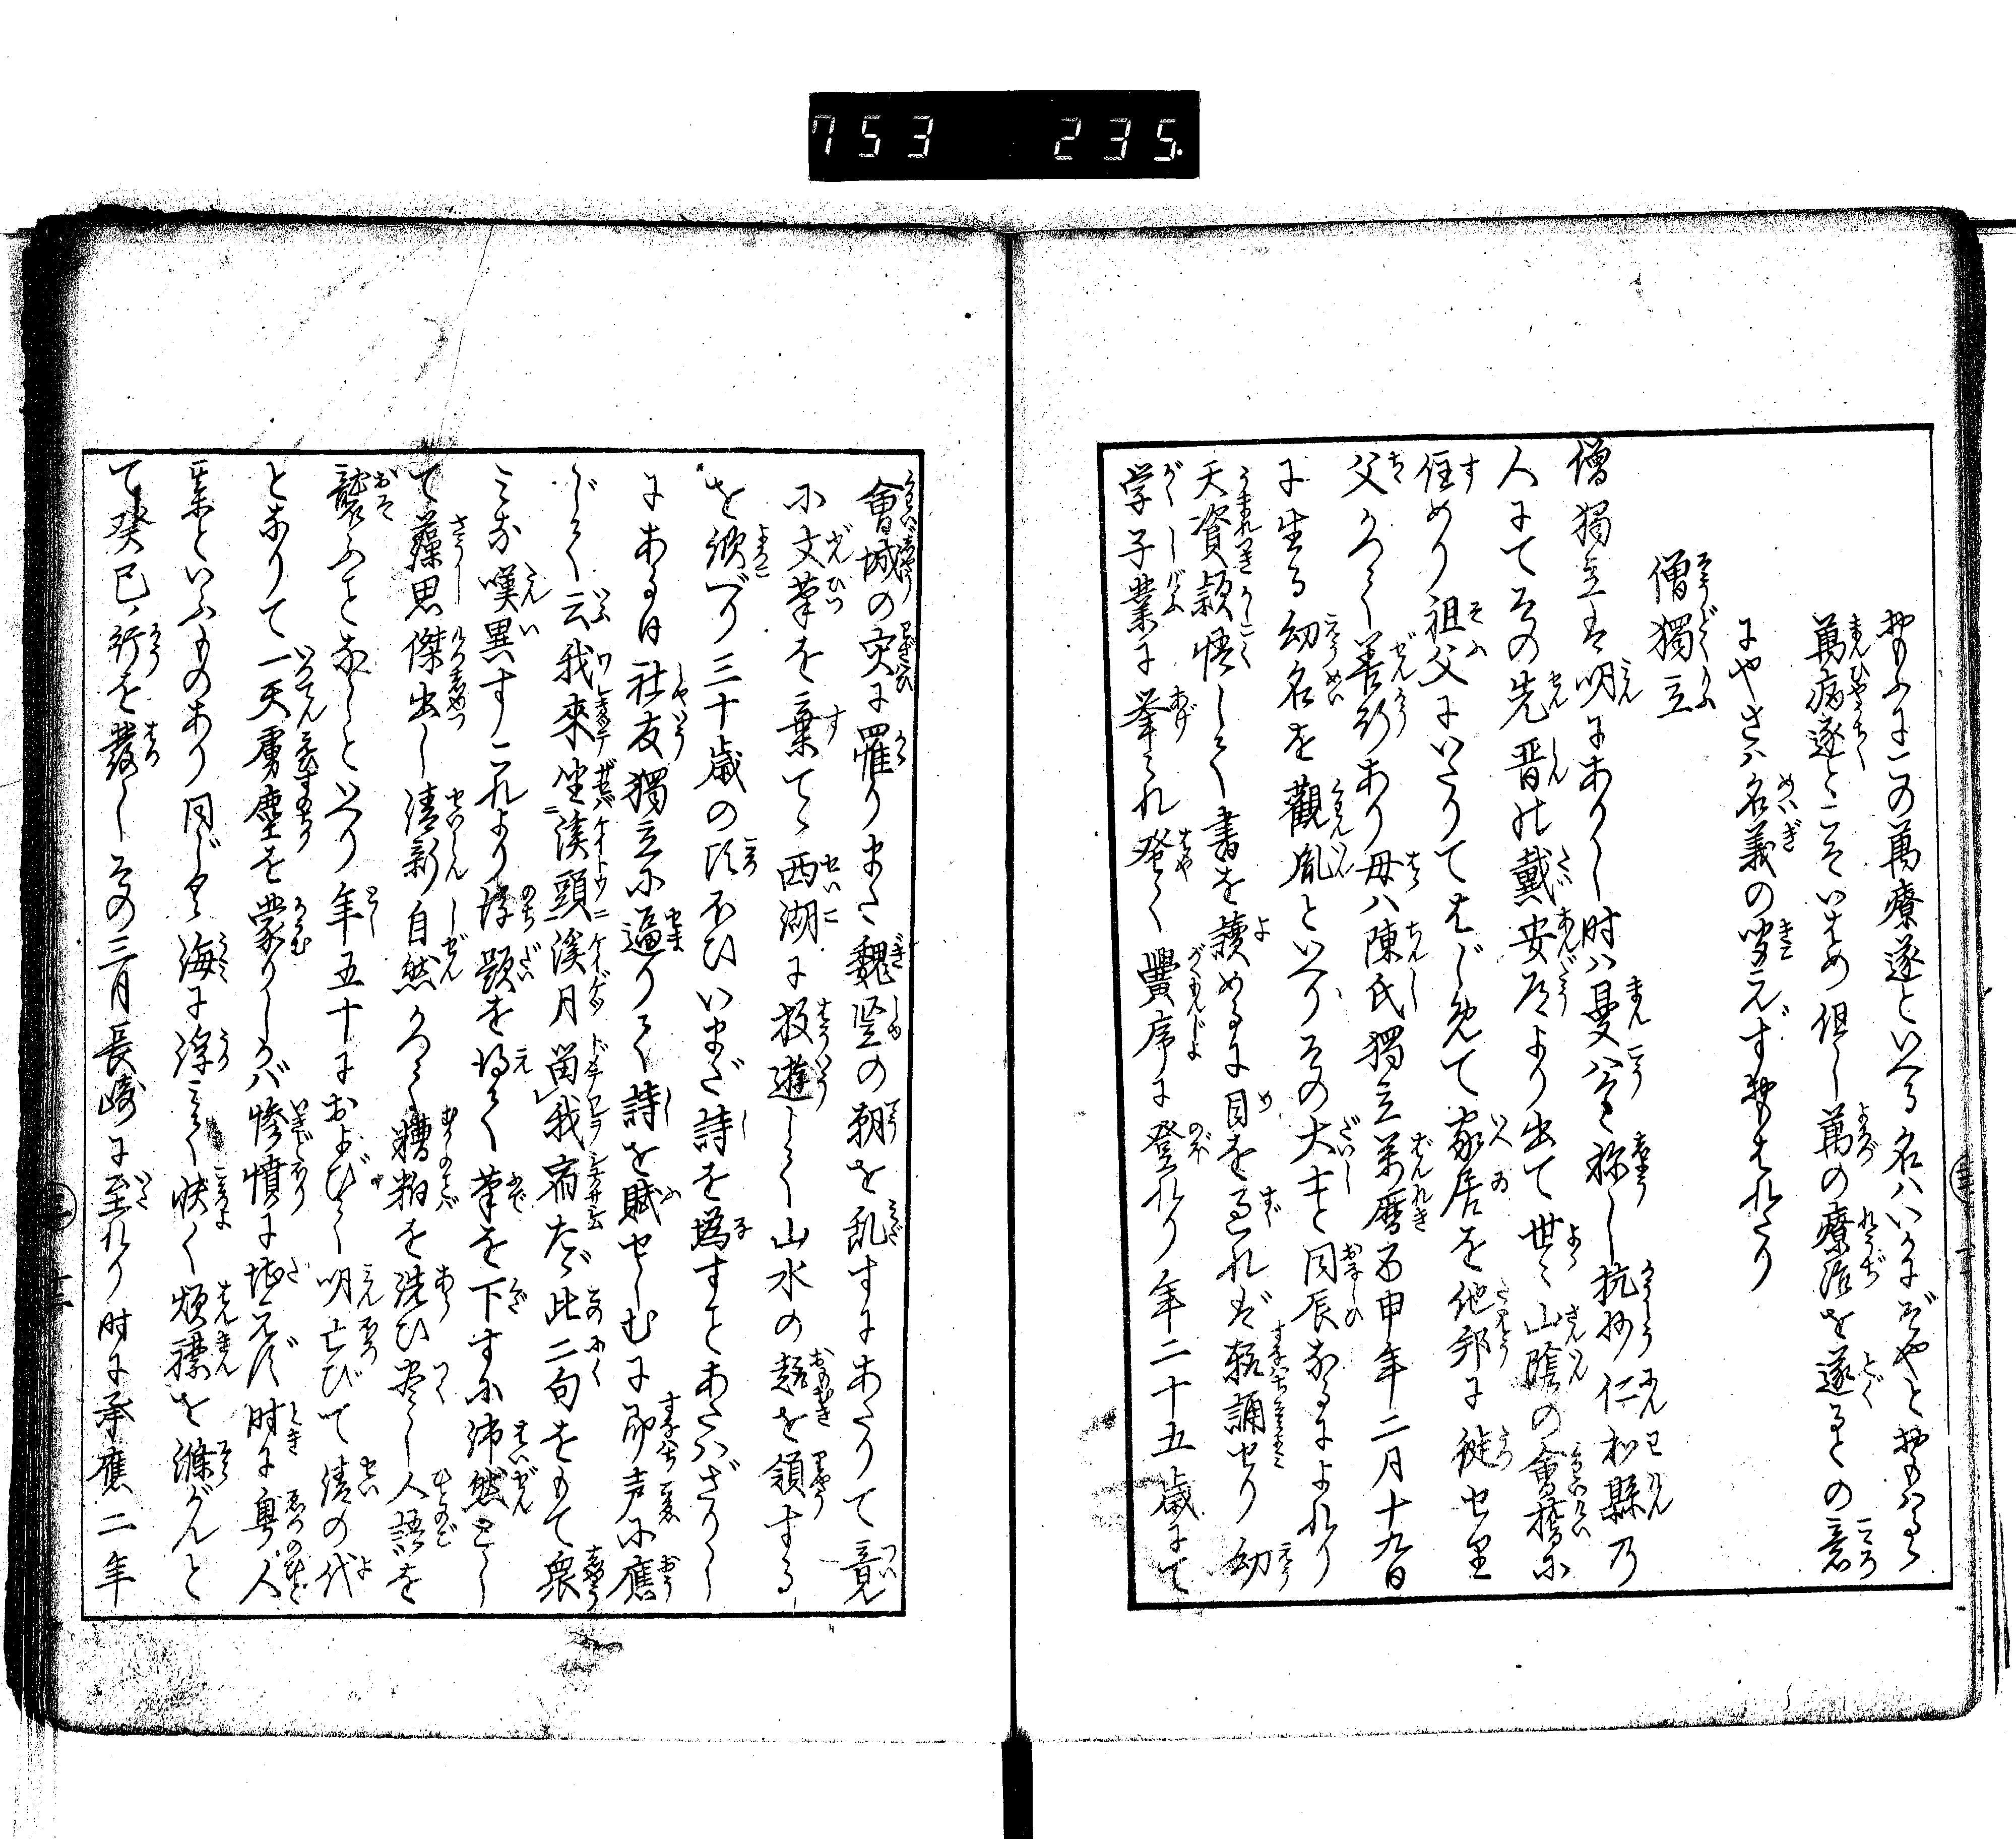 753 235.
おもふにこの萬療遂といへる名ハいかにぞやとおもハるゝ
萬病遂とこそいはめ但し萬の療治を遂るとの意
にやさハ名義の聞えずおもはれたり
僧獨立
僧獨立は明にありし時ハ曼公と称し杭州仁和縣乃
人にてその先晋の戴安道より出て世々山陰の會稽に
住めり祖父にいたりてはじめて家居を他郡に徙せり
父かつて善行あり母ハ陳氏獨立萬暦丙申年二月十九日
に生る幼名を觀胤といへりその大士と同辰なるによれり
天資頴悟して書を讀めるに目を過れば輒誦せり幼
学子業に挙られ登く黌序に登れり年二十五歳にて
會城の灾に罹りまた魏竪の朝を乱すにあたりて竟
に文筆を棄てゝ西湖に放遊して山水の趣を領する
を頌べり三十歳の頃ほひいまだ詩を為すことあたハざりし
にある日社友獨立に逼りて詩を賦せしむに即声に應
じて云我來坐溪頭溪月留我宿たゞ此二句をもて衆
みな嘆異すこれより後題を得て筆を下すに沛然とし
て藻思傑出し清新自然かつて糟粕を洗ひ尽し人語を
襲ふことなしといへり年五十におよびて明亡びて清の代
となりて一天虜塵を蒙りしかバ惨憤に堪えず時に粤人
某といふものあり同じく海に浮ミて快く煩襟を滌がんと
て癸巳行を發しその三月長崎に至れり時に承應二年